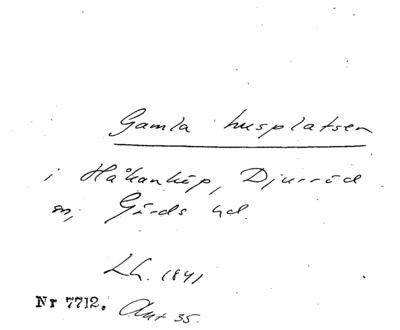 Gamla husplatsen
i Håkanköp, Djurröd
sn, Gärds hd.
Lh. 1841
Nr 7712. Akt 35.